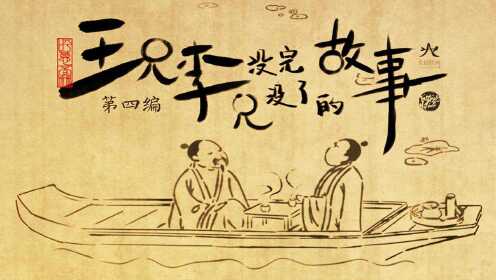 王兄李兄没完没了的故事
第四编